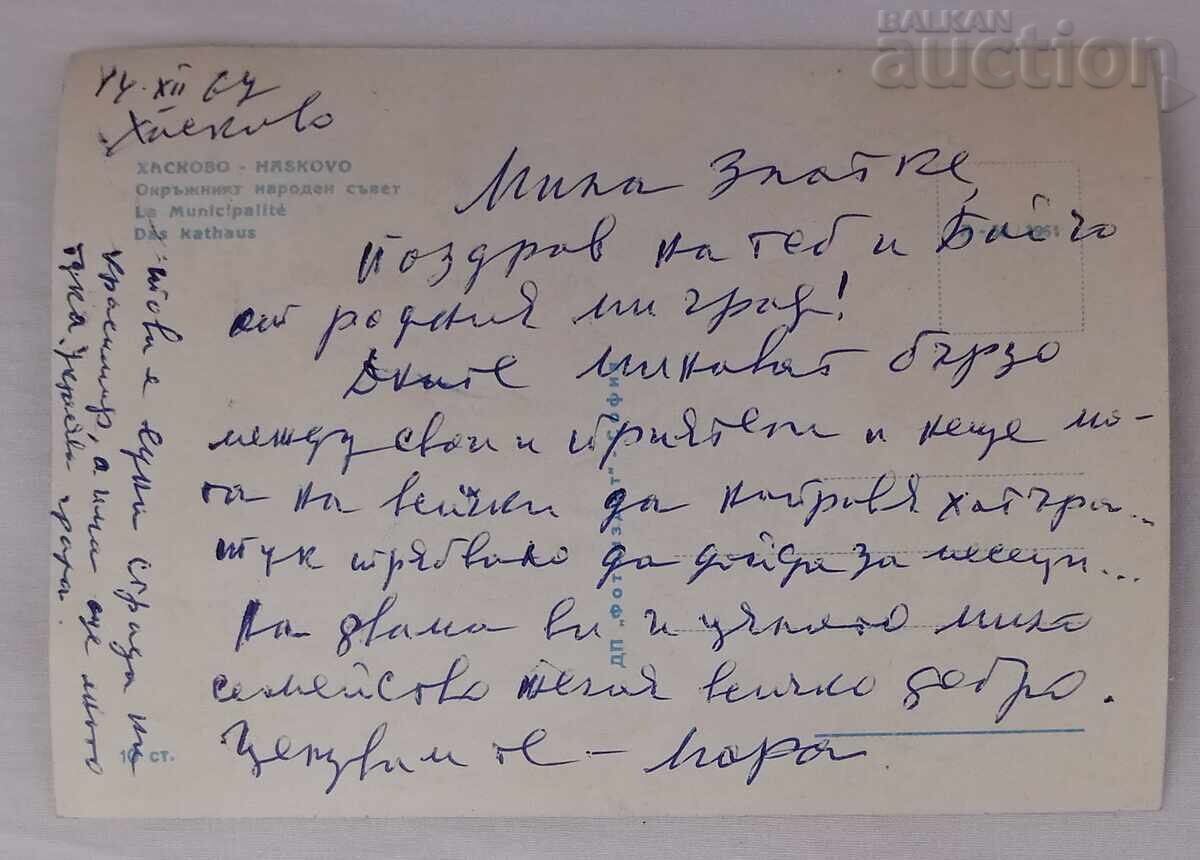 BALKAN
auction
14.XII 64
Хасково
ХАСКОВО - HASKOVO
Окръжният народен съвет
La Municipalité
Das Rathaus
Мила Златке,
Поздрав на теб и Бойчо
от родния ми град!
Дните минават бързо
между свои и приятели и неще мо-
га на всички да направя хатъра..
тук трябвало да дойда за месеци...
На двама ви и цялото мило
семейство желая всичко добро.
Целувам те - Мора
това е една страда на
красимир, а има още много
тука. Украсява града.
ДП „Фотоиздат" - София
1961
10 ст.